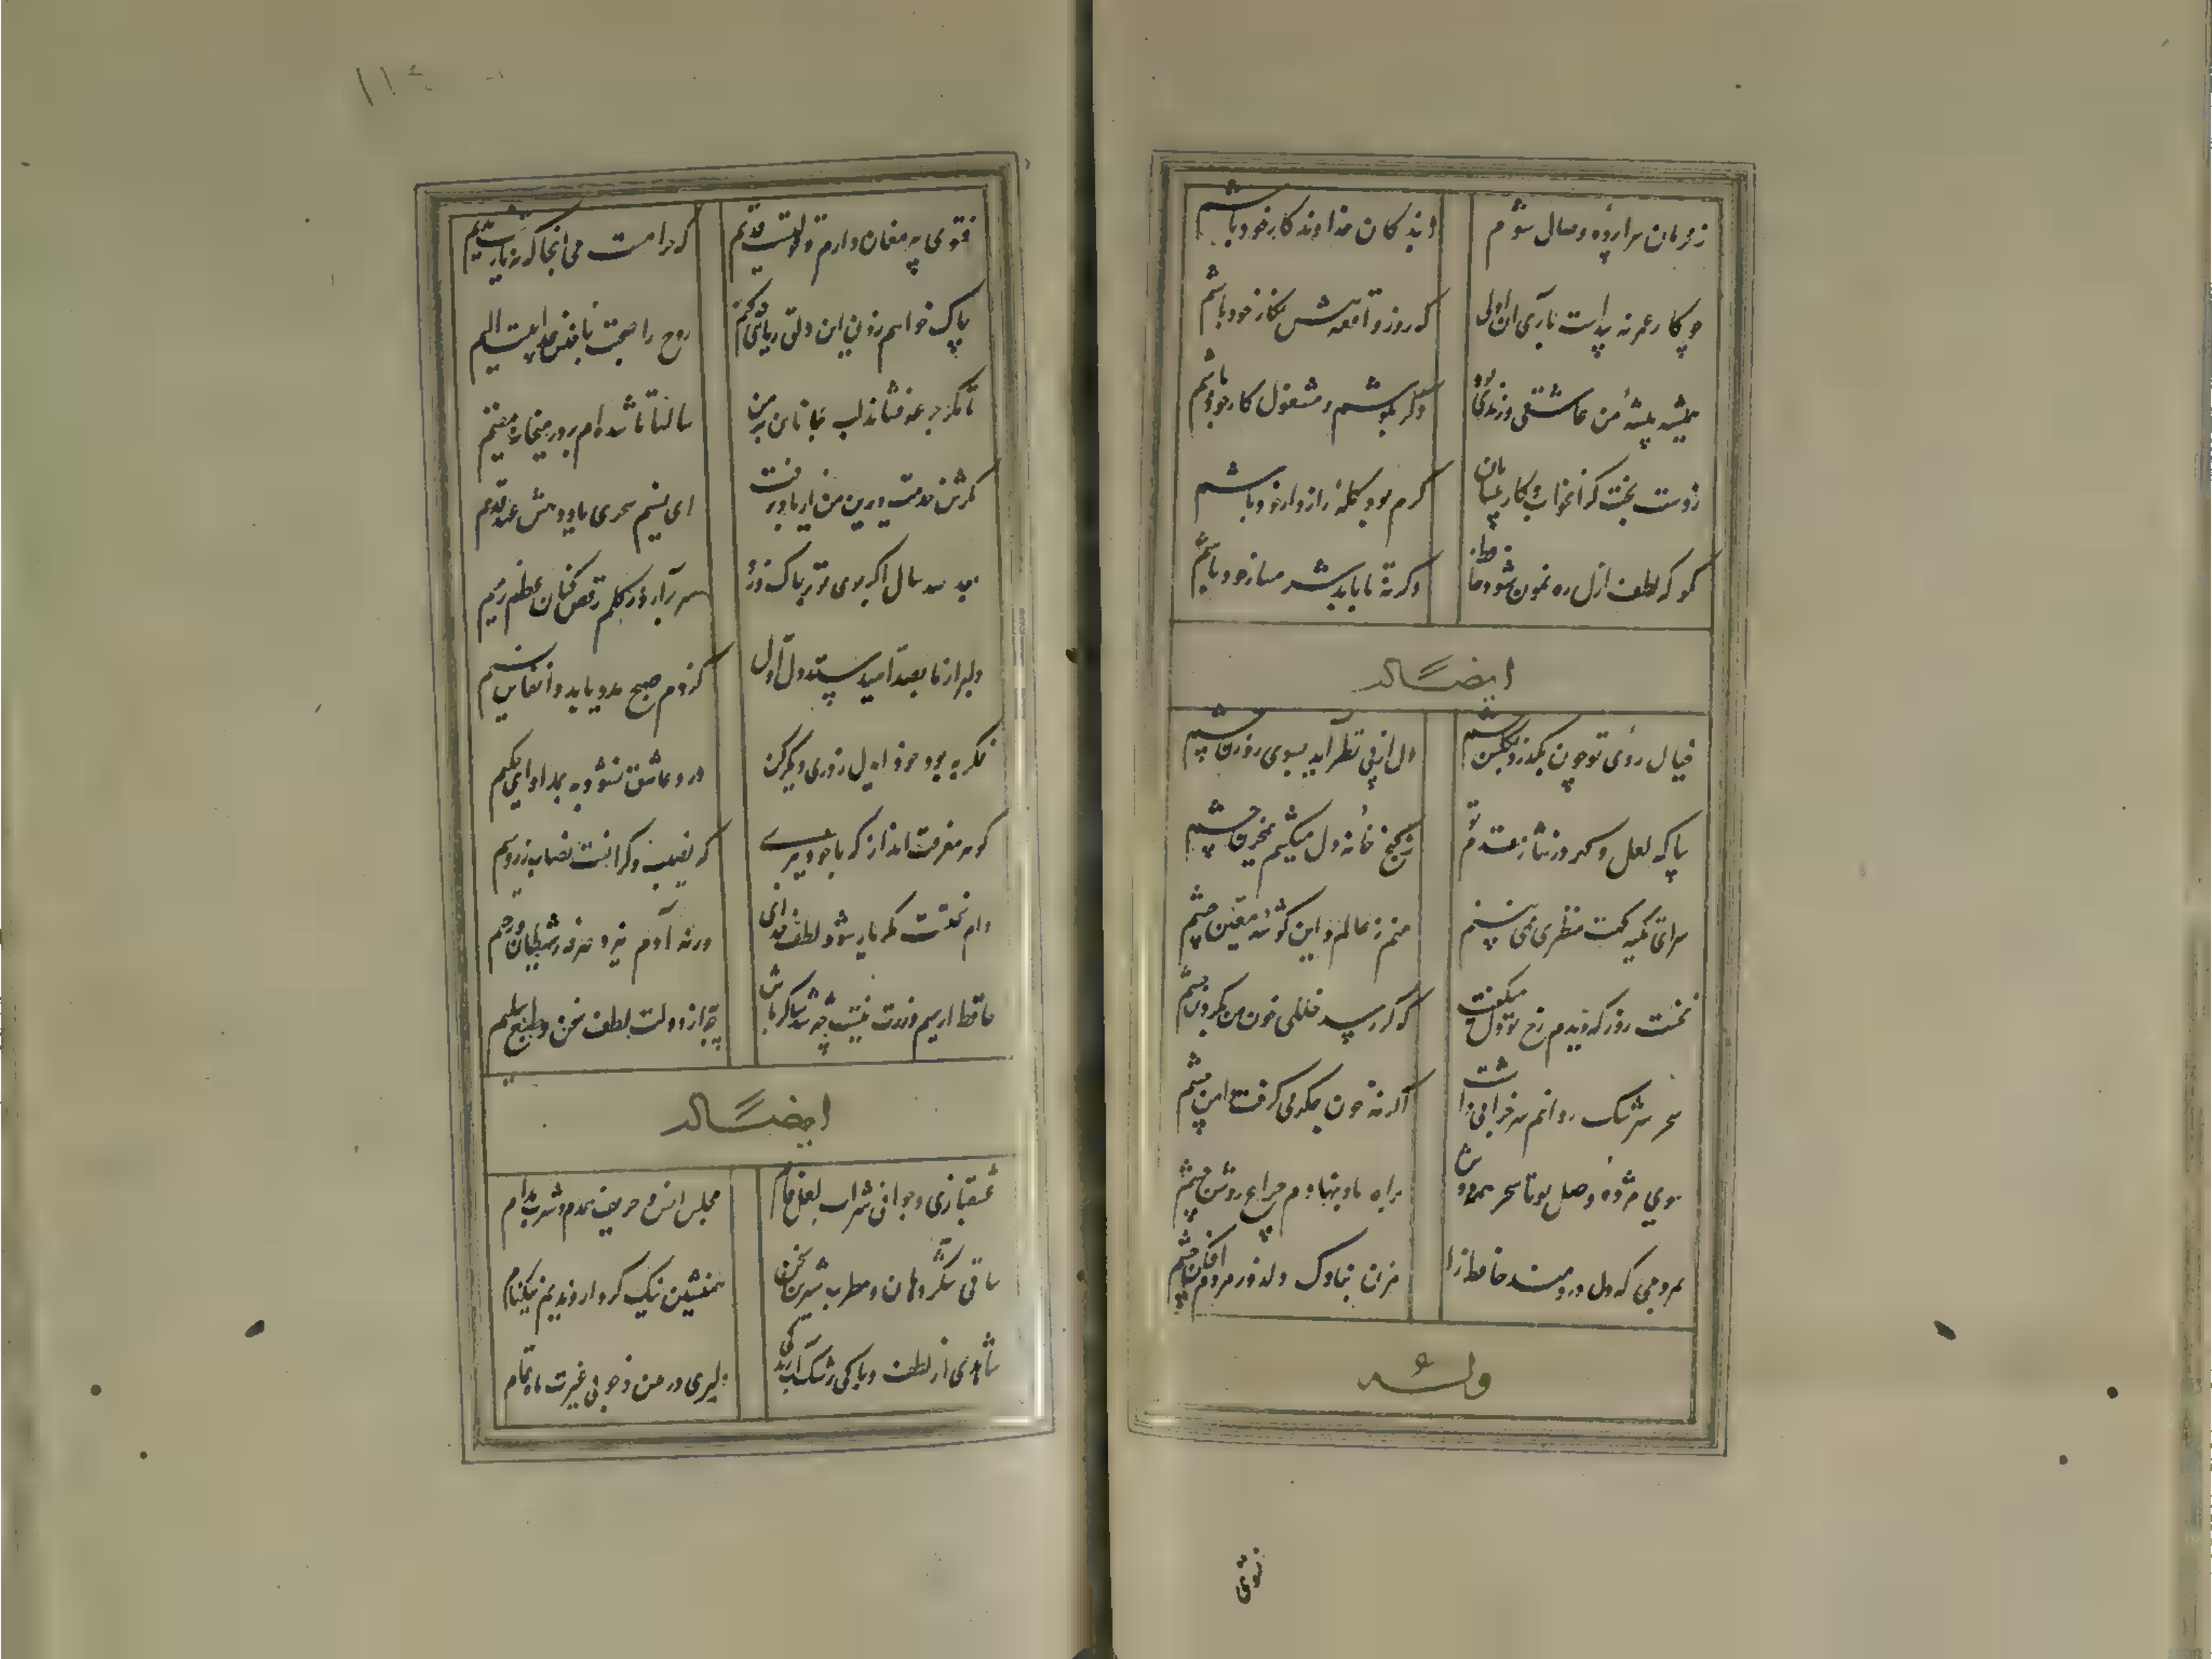 ز محرمان سراپرده وصال شوم
ز بندکان خداوندکار خود باشم
چو کار عمر نه پیداست باری آن اولی
که روز واقعه پیش نکار خود باشم
همیشه پیشهٔ من عاشقی و رندی بود
دکر بکوشم و مشغول کار خود باشم
ز دست بخت کران خواب و کار بیسامان
کرم بود کلهٔ رازدار خود باشم
بود که لطف ازل رهنمون شود حافظ
وکرنه تا بابد شرمسار خود باشم
ایضاً له
خیال روی تو چون بکذرد بکلشن چشم
دل از پی نظر آید بسوی روزن چشم
بیا که لعل و کهر در نثار مقدم تو
ز کنج خانه دل میکشم بمخزن چشم
سزای تکیه کهت منظری نمی بینم
منم ز عالم و این کوشهٔ معین چشم
نخست روز که دیدم رخ تو دل میکفت
که کر رسد خللی خون من بکردن چشم
سحر سرشک روانم سر خرابی داشت
کرنه خون جکر می کرفت دامن چشم
ببوی مژدهٔ وصل تو تا سحر شب دوش
براه باد نهادم چراغ روشن چشم
بمردمی که دل دردمند حافظ را
مزن بناوک دلدوز مردم افکن چشم
وله
فتوی
۱۱٤
فتوی پیر مغان دارم و قولیست قدیم
که حرامست می آنجا که نه یارست ندیم
چاک خواهم زدن این دلق ریائی چکنم
روح را صحبت ناجنس عذابیست الیم
تا مکر جرعه فشاند لب جانان بر من
سالها تا شده ام بر در میخانه مقیم
مکرش خدمت دیرین من از یاد برفت
ای نسیم سحری یاد دهش عهد قدیم
بعد صد سال اکر بوی تو بر خاک وزد
سر برآرد ز کلم رقص کنان عظم رمیم
دلبر از ما بصد امید ستد دل اول
کز دم صبح مدد یابد و انفاس نسیم
فکر بهبود خود ای دل ز دری دیکر کن
درد عاشق نشود به بمداوای حکیم
کوهر معرفت اندوز که با خود ببری
که نصیب دکرانست نصاب زر و سیم
دام سختست مکر یار شود لطف خدای
ورنه آدم نبرد صرفه ز شیطان رجیم
حافظ ار سیم و زرت نیست چه شد شاکر باش
چه به از دولت لطف سخن و طبع سلیم
ایضاً له
عشقبازی و جوانی شراب لعل فام
مجلس انس و حریف همدم و شرب مدام
ساقی شکر دهان و مطرب شیرین سخن
همنشین نیک کردار و ندیم نیکنام
شاهدی از لطف و پاکی رشک آب زندکی
دلبری در حسن و خوبی غیرت ماه تمام